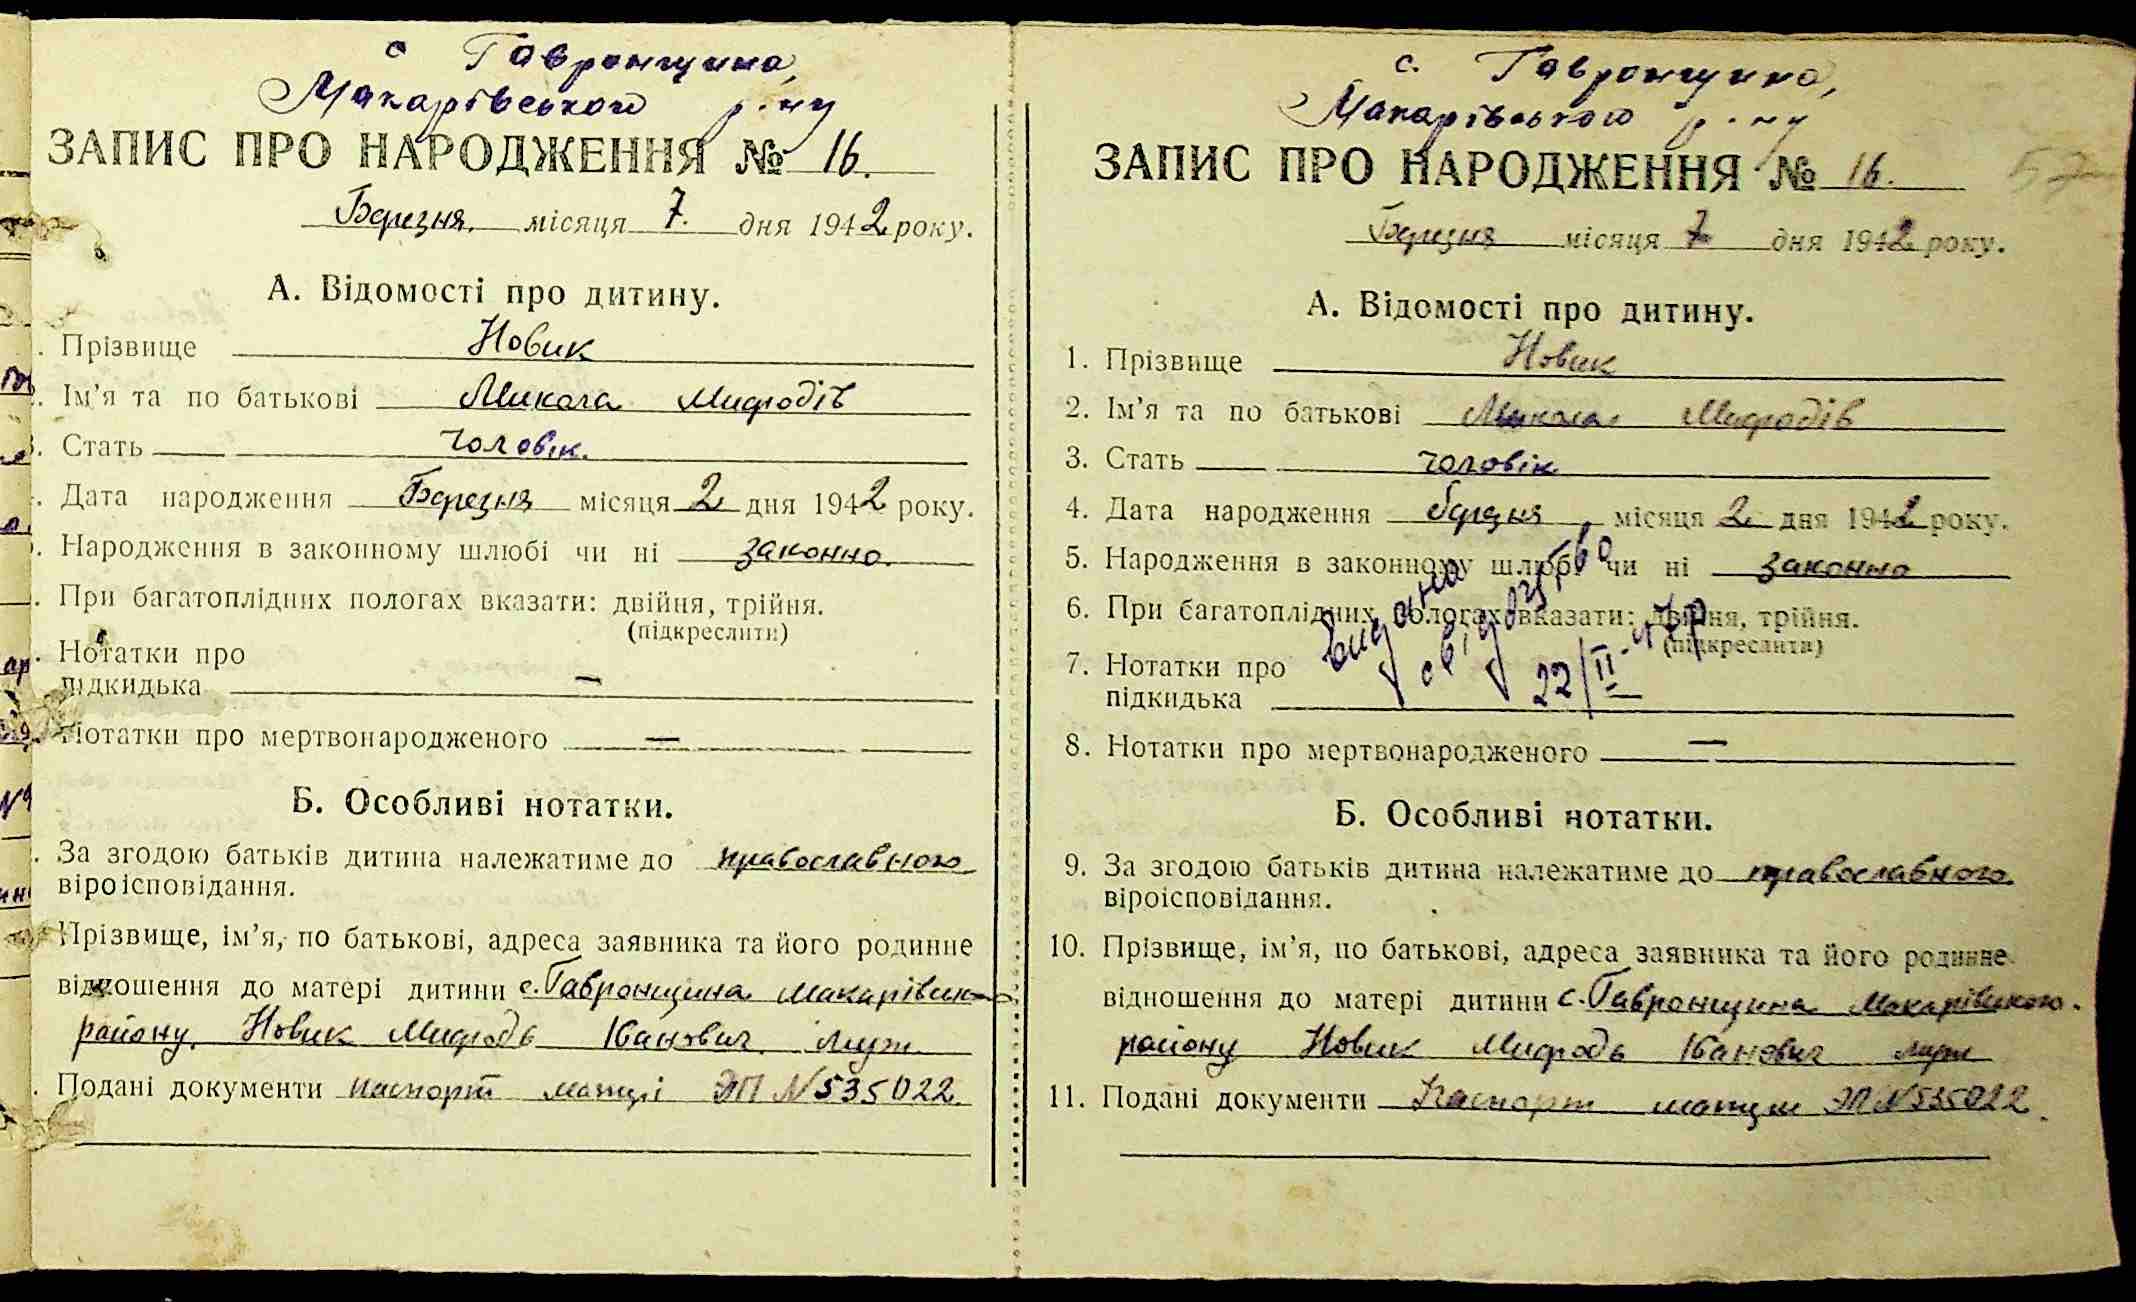 с Гавронщина,
Макарівського р-ну
ЗАПИС ПРО НАРОДЖЕННЯ № 16.
Березня. місяця 7. дня 1942 року.
А. Відомості про дитину.
Прізвище Новик
Ім'я та по батькові Микола Мифодів
Стать чоловік.
Дата народження Березня місяця 2 дня 1942 року.
Народження в законному шлюбі чи ні законно.
При багатоплідних пологах вказати: двійня, трійня.
(підкреслити)
Нотатки про
підкидька —
Нотатки про мертвонародженого —
Б. Особливі нотатки.
За згодою батьків дитина належатиме до православного
віроісповідання.
Прізвище, ім'я, по батькові, адреса заявника та його родинне
відношення до матері дитини с. Гавронщина Макарівськ
району. Новик Мифодь Іванович. муж
Подані документи паспорт матері ЭП №535022.
с. Гавронщина,
Макарівського р-ну
ЗАПИС ПРО НАРОДЖЕННЯ № 16. 57
Березня місяця 7 дня 1942 року.
А. Відомості про дитину.
1. Прізвище Новик
2. Ім'я та по батькові Микола Мифодів
3. Стать чоловік
4. Дата народження березня місяця 2 дня 1942 року.
5. Народження в законному шлюбі чи ні законно
6. При багатоплідних пологах вказати: двійня, трійня.
(підкреслити)
Видано
свідоцтво
22/II-47р
7. Нотатки про
підкидька
8. Нотатки про мертвонародженого —
Б. Особливі нотатки.
9. За згодою батьків дитина належатиме до православного
віроісповідання.
10. Прізвище, ім'я, по батькові, адреса заявника та його родинне
відношення до матері дитини с. Гавронщина Макарівського
району Новик Мифодь Іванович муж
11. Подані документи Паспорт матери ЭП №535022.